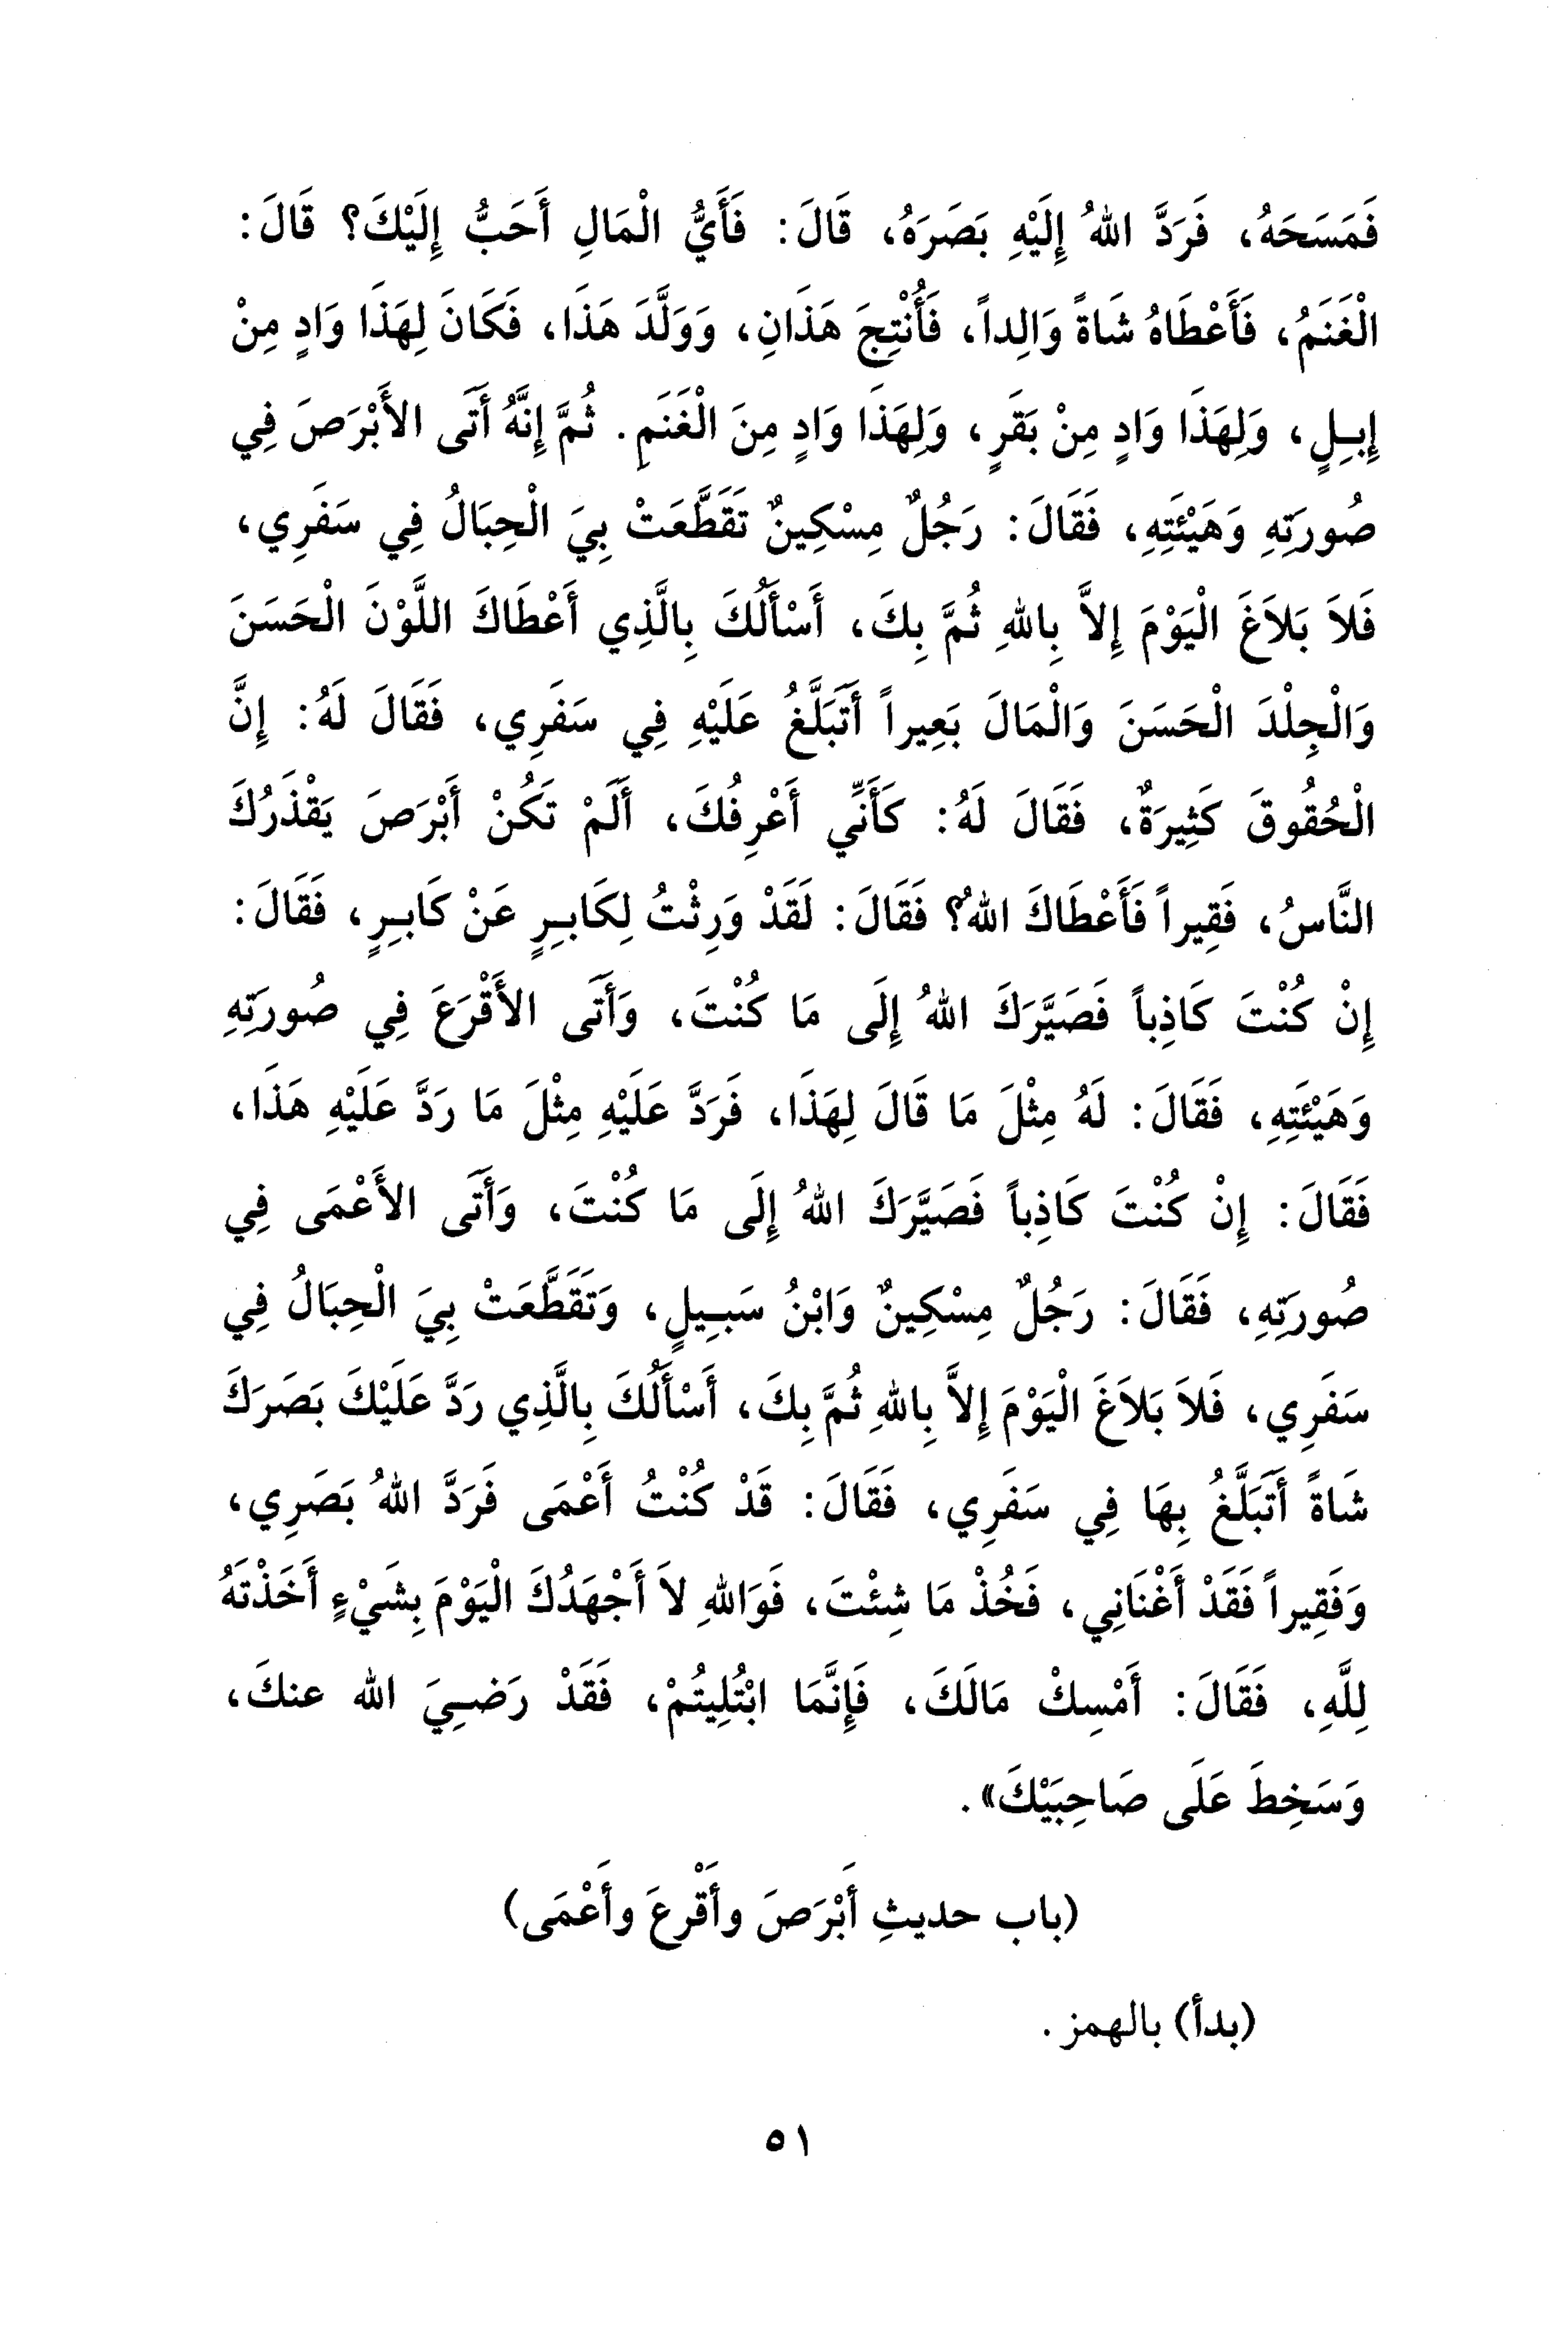 فَمَسَحَهُ، فَرَدَّ اللهُ إِلَيْهِ بَصَرَهُ، قَالَ: فَأَيُّ الْمَالِ أَحَبُّ إِلَيْكَ؟ قَالَ:
الْغَنَمُ، فَأَعْطَاهُ شَاةً وَالِداً، فَأُنْتِجَ هَذَانِ، وَوَلَّدَ هَذَا، فَكَانَ لِهَذَا وَادٍ مِنْ
إِبِلٍ، وَلِهَذَا وَادٍ مِنْ بَقَرٍ، وَلِهَذَا وَادٍ مِنَ الْغَنَمِ. ثُمَّ إِنَّهُ أَتَى الأَبْرَصَ فِي
صُورَتِهِ وَهَيْئَتِهِ، فَقَالَ: رَجُلٌ مِسْكِينٌ تَقَطَّعَتْ بِيَ الْحِبَالُ فِي سَفَرِي،
فَلاَ بَلاَغَ الْيَوْمَ إِلاَّ بِاللهِ ثُمَّ بِكَ، أَسْأَلُكَ بِالَّذِي أَعْطَاكَ اللَّوْنَ الْحَسَنَ
وَالْجِلْدَ الْحَسَنَ وَالْمَالَ بَعِيراً أَتَبَلَّغُ عَلَيْهِ فِي سَفَرِي، فَقَالَ لَهُ: إِنَّ
الْحُقُوقَ كَثِيرَةٌ، فَقَالَ لَهُ: كَأَنِّي أَعْرِفُكَ، أَلَمْ تَكُنْ أَبْرَصَ يَقْذَرُكَ
النَّاسُ، فَقِيراً فَأَعْطَاكَ اللهُ؟ فَقَالَ: لَقَدْ وَرِثْتُ لِكَابِرٍ عَنْ كَابِرٍ، فَقَالَ:
إِنْ كُنْتَ كَاذِباً فَصَيَّرَكَ اللهُ إِلَى مَا كُنْتَ، وَأَتَى الأَقْرَعَ فِي صُورَتِهِ
وَهَيْئَتِهِ، فَقَالَ: لَهُ مِثْلَ مَا قَالَ لِهَذَا، فَرَدَّ عَلَيْهِ مِثْلَ مَا رَدَّ عَلَيْهِ هَذَا،
فَقَالَ: إِنْ كُنْتَ كَاذِباً فَصَيَّرَكَ اللهُ إِلَى مَا كُنْتَ، وَأَتَى الأَعْمَى فِي
صُورَتِهِ، فَقَالَ: رَجُلٌ مِسْكِينٌ وَابْنُ سَبِيلٍ، وَتَقَطَّعَتْ بِيَ الْحِبَالُ فِي
سَفَرِي، فَلاَ بَلاَغَ الْيَوْمَ إِلاَّ بِاللهِ ثُمَّ بِكَ، أَسْأَلُكَ بِالَّذِي رَدَّ عَلَيْكَ بَصَرَكَ
شَاةً أَتَبَلَّغُ بِهَا فِي سَفَرِي، فَقَالَ: قَدْ كُنْتُ أَعْمَى فَرَدَّ اللهُ بَصَرِي،
وَفَقِيراً فَقَدْ أَغْنَانِي، فَخُذْ مَا شِئْتَ، فَوَاللهِ لاَ أَجْهَدُكَ الْيَوْمَ بِشَيْءٍ أَخَذْتَهُ
لِلَّهِ، فَقَالَ: أَمْسِكْ مَالَكَ، فَإِنَّمَا ابْتُلِيتُمْ، فَقَدْ رَضِيَ الله عنكَ،
وَسَخِطَ عَلَى صَاحِبَيْكَ».
(باب حديثِ أَبْرَصَ وأَقْرعَ وأَعْمَى)
(بدأ) بالهمز.
٥١